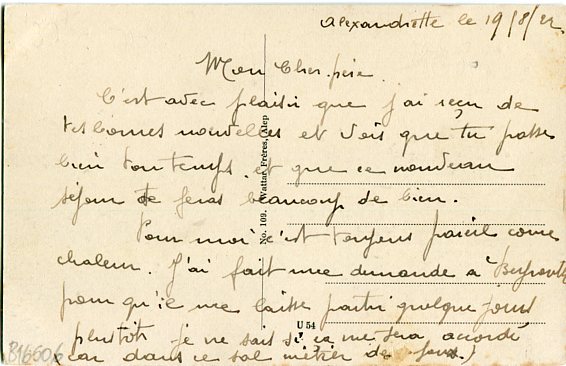 Alexandrette le 19/8/22.
Mon Cher père.
C'est avec plaisir que j'ai reçu de
tes bonnes nouvelles et vois que tu passe
bien ton temps. et que ce nouveau
séjour te feras beaucoup de bien.
Pour moi c'est toujours pareil comme
chaleur. J'ai fait une demande à Beyrouth
pour qu'il me laisse partir quelque jours
plutôt je ne sais si ça me sera accordé
(car dans ce sal métier de
No. 109. Wattar Frères, Alep
U 54
816606